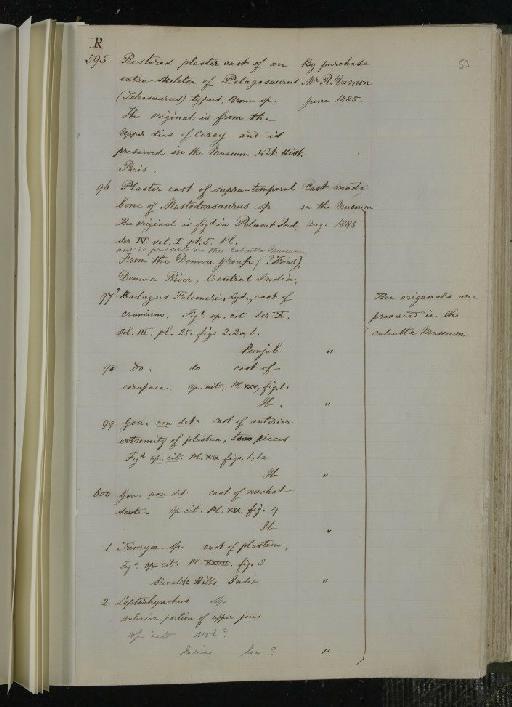 R
53
595 Restored plaster cast of an By purchase
entire skeleton of Pelagosaurus Mr R. Damon
(Teleosaurus) typus, Bronn sp. June 1885.
The original is from the
Upper Lias of Curcy and is
preserved in the Museum Nat. Hist.
Paris.
96 Plaster cast of supra-temporal Cast made
bone of Mastodonsaurus sp in the Museum
The original is figd in Palaeont. Ind. Aug. 1885
Ser IV vol. I pt. 5. Pl.
and is preserved in the Calcutta Museum
From the Denwa group
Denwa River, Central India.
97 Lyd., cast of The originals are
cranium. Figd op. cit. Ser X. preserved in the
Vol. III. pl. 25. figs 2. 2a, b. Calcutta Museum
Punjab "
98 Do. do cast of
carapace. op. cit. Pl. XXV, fig. 1.
Ib. "
99 Gen. non det. cast of anterior
extremity of plastron, two pieces
Figd op. cit. Pl. figs. 1, 1a
Ib "
600 Gen. non det. cast of nuchal
scute. op. cit. Pl. XXI. fig. 4
Ib "
1 Trionyx sp. cast of plastron,
Figd. op. cit. Pl. fig. 3
Siwalik Hills India "
2 Leptorhynchus sp.
anterior portion of upper jaw
op. cit
"